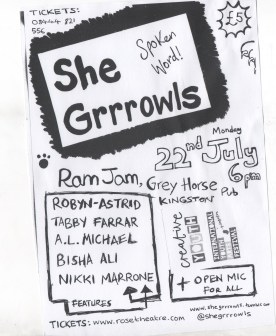 TICKETS:
08444 821
556
£5
Spoken
Word!
She
Grrrowls
Monday
22nd July
6pm
Ram Jam, Grey Horse Pub
KINGSTON
ROBYN-ASTRID
TABBY FARRAR
A.L. MICHAEL
BISHA ALI
NIKKI MARRONE
FEATURES
creative
YOUTH
INTERNATIONAL
YOUTH
ARTS
FESTIVAL
+ OPEN MIC
FOR ALL
@shegrrrowls
TICKETS: www.rosetheatre.com